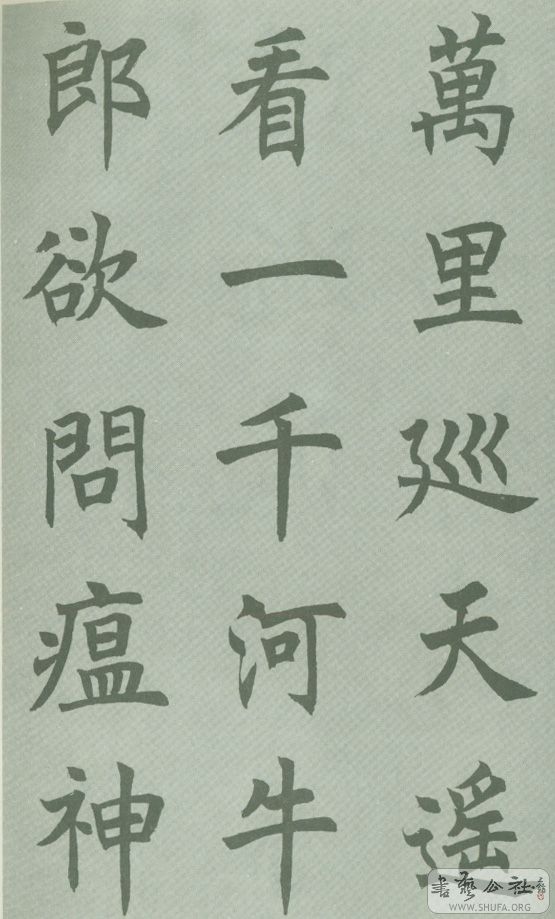 萬里廵天遥
看一千河牛
郎欲問瘟神
書藝公社
WWW.SHUFA.ORG